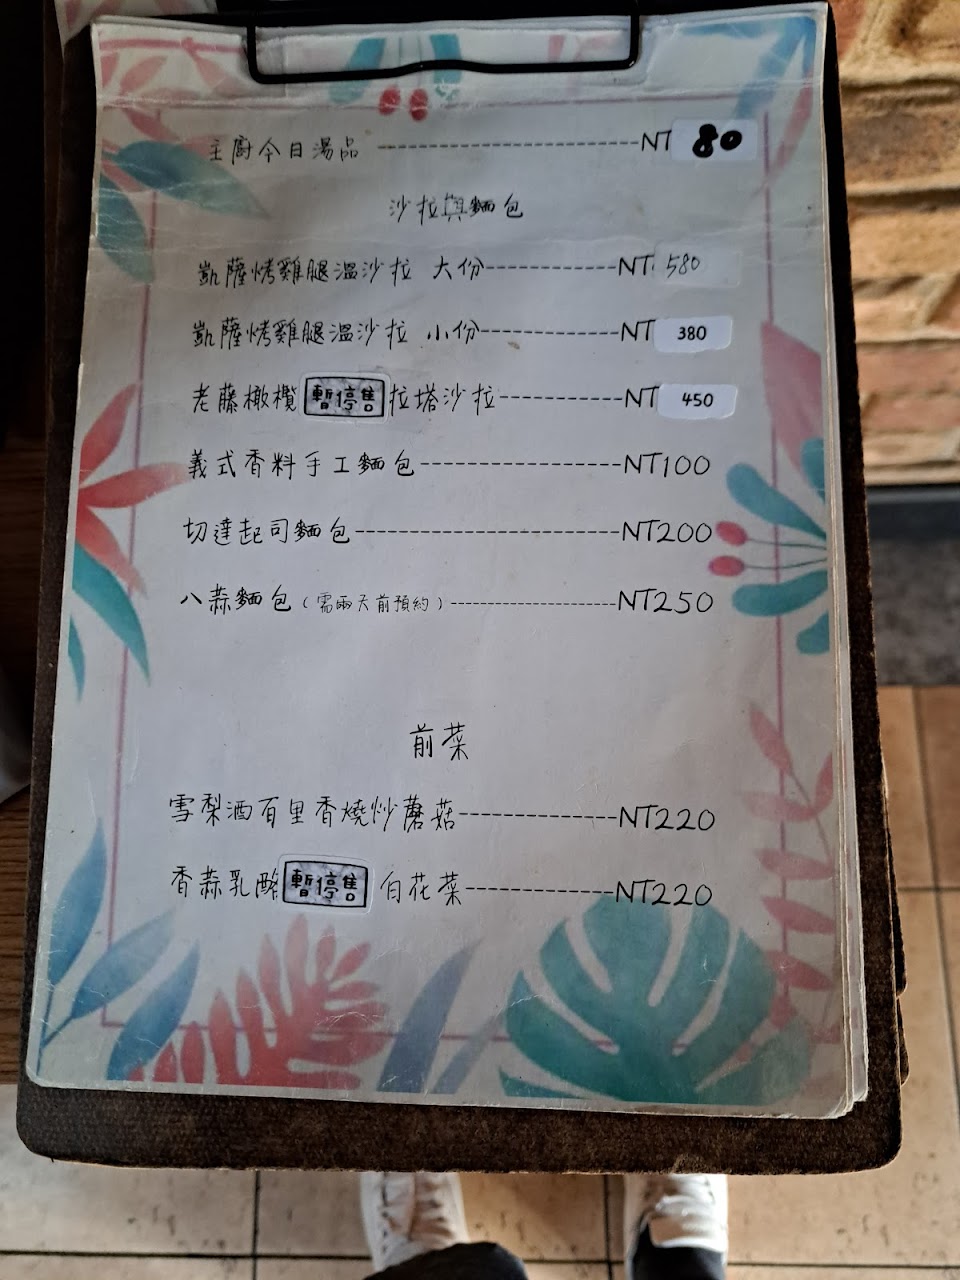 主廚今日湯品 ------------------------NT 80
沙拉與麵包
凱薩烤雞腿溫沙拉 大份------------NT 580
凱薩烤雞腿溫沙拉 小份------------NT 380
老藤橄欖 暫停售 拉塔沙拉-----------NT 450
義式香料手工麵包------------------NT100
切達起司麵包-----------------------NT200
八蒜麵包(需兩天前預約)--------------------NT250
前菜
雪梨酒百里香燒炒蘑菇-------------NT220
香蒜乳酪 暫停售 白花菜------------NT220